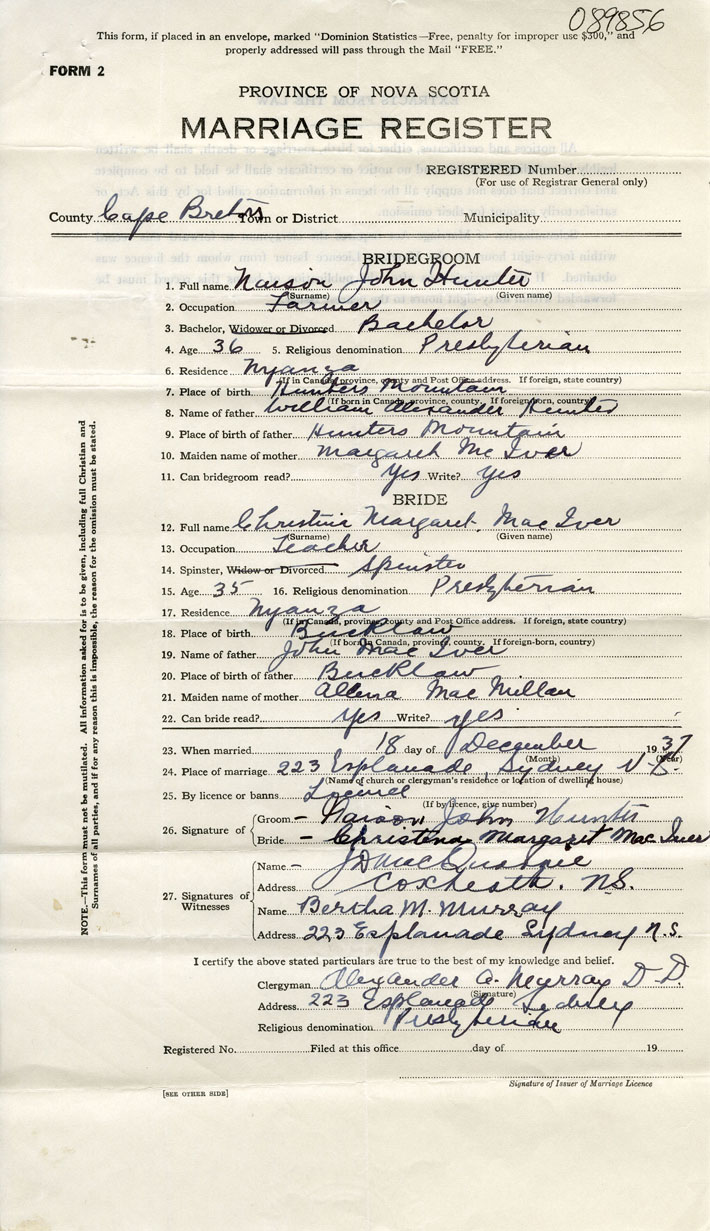 089856
This form, if placed in an envelope, marked "Dominion Statistics—Free, penalty for improper use $300," and
properly addressed will pass through the Mail "FREE."
FORM 2
PROVINCE OF NOVA SCOTIA
MARRIAGE REGISTER
REGISTERED Number
(For use of Registrar General only)
County Cape Breton Town or District Municipality
BRIDEGROOM
1. Full name Naison John Hunter
(Surname) (Given name)
2. Occupation Farmer
3. Bachelor, Widower or Divorced Bachelor
4. Age 36 5. Religious denomination Presbyterian
6. Residence Nyanza
(If in Canada, province, county and Post Office address. If foreign, state country)
7. Place of birth Hunters Mountain
(If born in Canada, province, county. If foreign-born, country)
8. Name of father William Alexander Hunter
9. Place of birth of father Hunters Mountain
10. Maiden name of mother Margaret Mc Iver
11. Can bridegroom read? Yes Write? Yes
BRIDE
12. Full name Christina Margaret Mac Iver
(Surname) (Given name)
13. Occupation Teacher
14. Spinster, Widow or Divorced Spinster
15. Age 35 16. Religious denomination Presbyterian
17. Residence Nyanza
(If in Canada, province, county and Post Office address. If foreign, state country)
18. Place of birth Bucklaw
(If born in Canada, province, county. If foreign-born, country)
19. Name of father John Mac Iver
20. Place of birth of father Bucklaw
21. Maiden name of mother Mac Millan
22. Can bride read? yes Write? yes
23. When married 18 day of December 1937
(Month) (Year)
24. Place of marriage 223 Esplanade, Sydney N.S.
(Name of church or clergyman's residence or location of dwelling house)
25. By licence or banns Licence
(If by licence, give number)
26. Signature of
Groom – Naison John Hunter
Bride – Christena Margaret Mac Iver
27. Signatures of Witnesses
Name –
Address Coxheath. N.S.
Name Bertha M. Murray
Address 223 Esplanade Sydney N.S.
I certify the above stated particulars are true to the best of my knowledge and belief.
Clergyman Alexander A. Murray D.D.
(Signature)
Address 223 Esplanade Sydney
Religious denomination Presbyterian
Registered No. Filed at this office day of 19
Signature of Issuer of Marriage Licence
[SEE OTHER SIDE]
NOTE.—This form must not be mutilated. All information asked for is to be given, including full Christian and
Surnames of all parties, and if for any reason this is impossible, the reason for the omission must be stated.